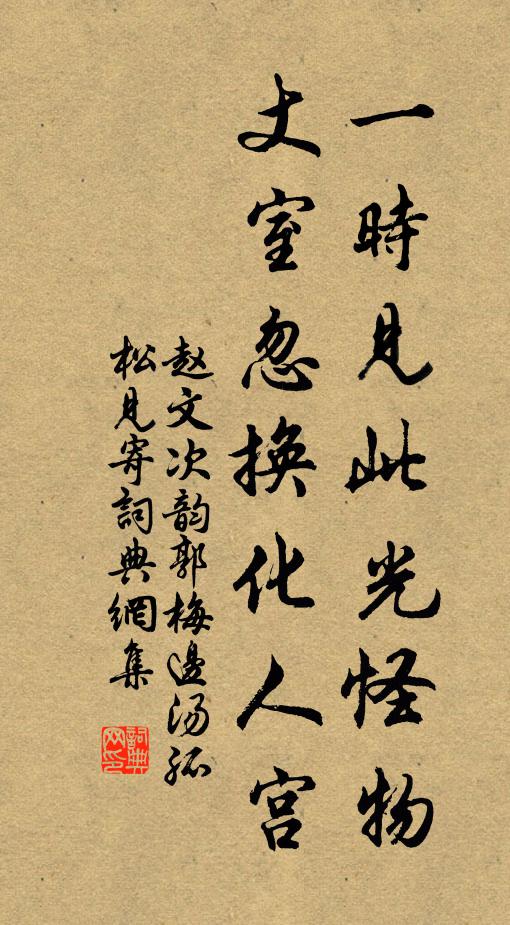 一時見此光怪物
丈室忽換化人宫
赵文次韵郭梅邊汤孤
松見寄詞典網集
詞典网印